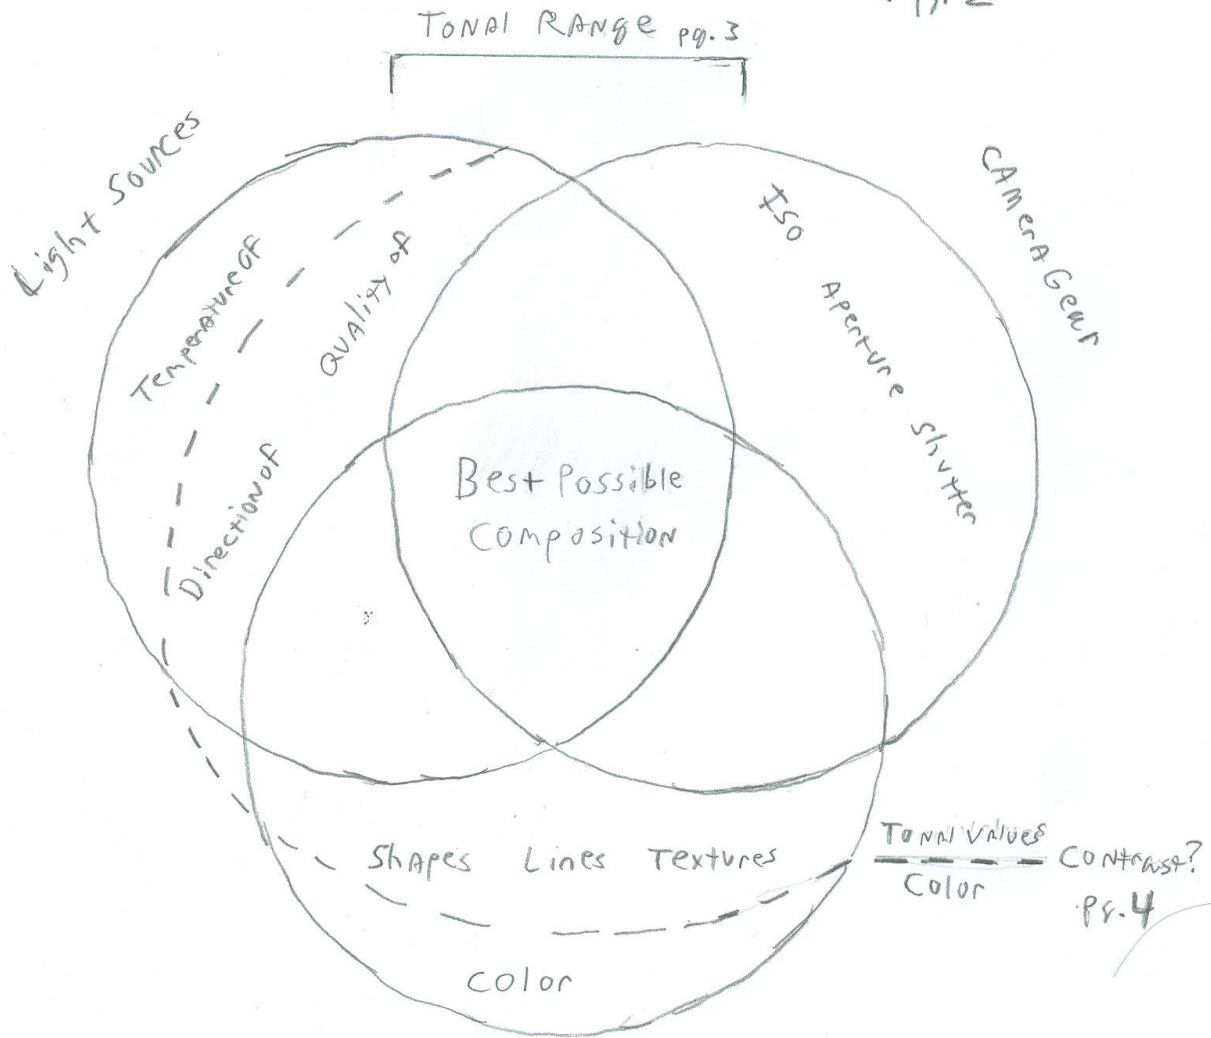 pg. 2
TONAl RANge pg. 3
Light Sources
CAMerA Gear
Temperature OF
QUAlity of
Direction of
ISO
Aperture
Shutter
Best Possible
Composition
Shapes Lines Textures
Color
TONAl VAlues
Color
Contrast?
pg. 4